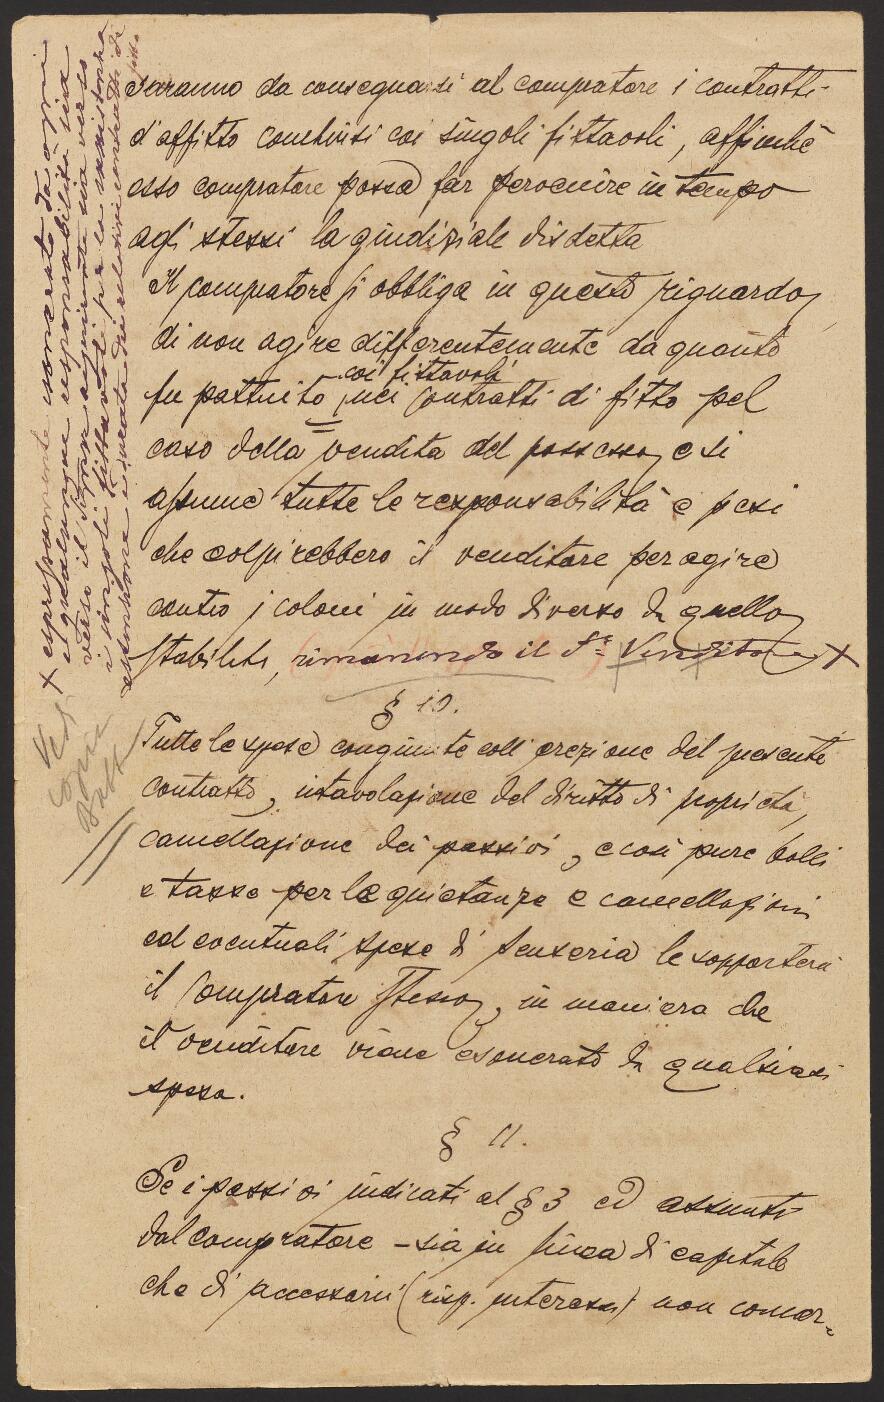 saranno da consegnarsi al compratore i contratti
d'affitto conchiusi coi singoli fittavoli, affinché
esso compratore possa far pervenire in tempo
agli stessi la giudiziale disdetta
Il compratore si obbliga in questo riguardo,
di non agire differentemente da quanto
coi fittavoli
fu pattuito nei contratti di fitto pel
caso della vendita del possesso, e si
assume tutte le responsabilità e pesi
che colpirebbero il venditore per agire
contro i coloni in modo diverso da quello
stabilito, rimanendo il Sr. Venditore X
§ 10.
Tutte le spese congiunte coll'erezione del presente
contratto, intavolazione del diritto di proprietà,
cancellazione dei passivi, e così pure bolli
e tasse per le quietanze e cancellazioni
ed eventuali spese di senseria le sopporterà
il Compratore stesso, in maniera che
il venditore viene esonerato da qualsiasi
spesa.
§ 11.
Se i passivi indicati al § 3 ed assunti
dal compratore – sia in linea di capitale
che di accessorii (risp. interessi) non concor-
X espressamente esonerato da ogni
e qualunque responsabilità sia
verso il Sign. acquirente sia verso
i singoli fittavoli per la
dei relativi contratti di
fitto
Vedi
copia